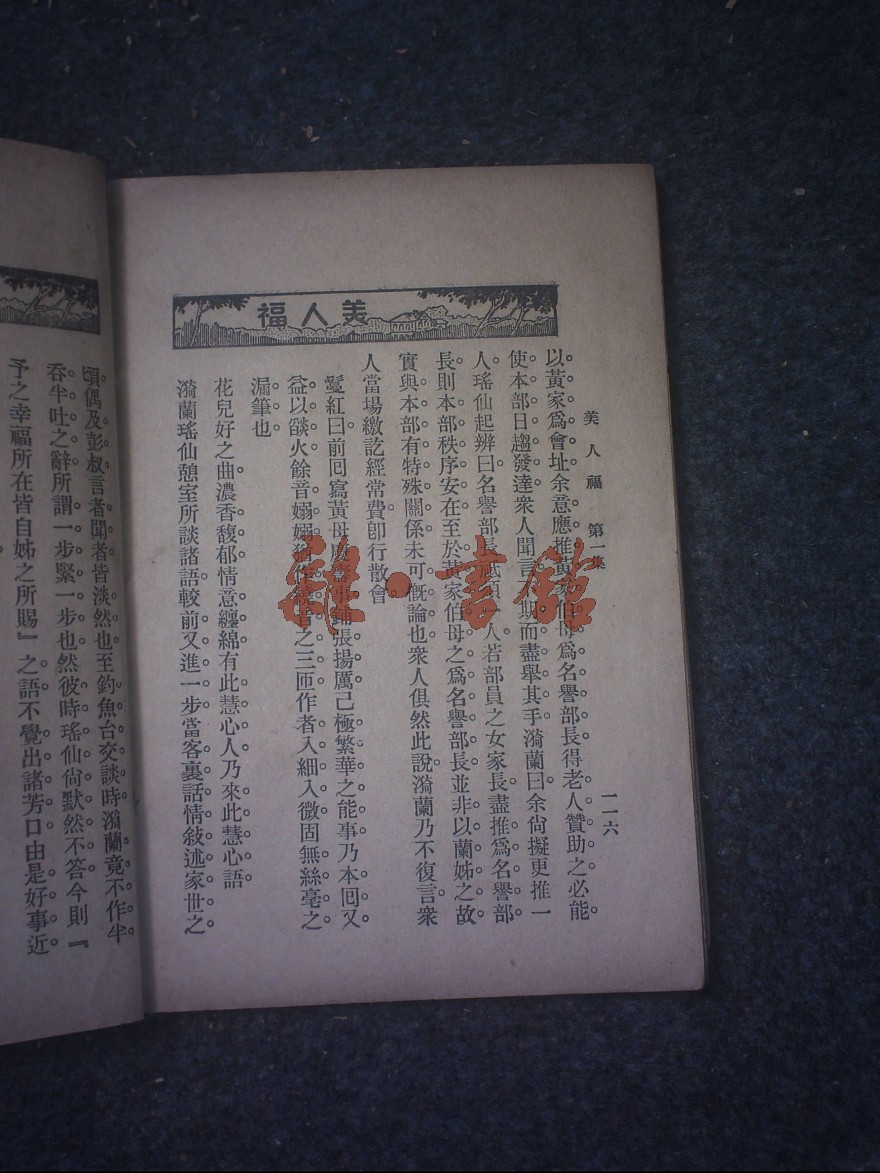 美人福
美人福 第一集
一一六
以黃家爲會址余意應推黃家伯母爲名譽部長得老人贊助之必能
使本部日趨發達衆人聞言期而盡舉其手漪蘭曰余尙擬更推一
人瑤仙起辨曰名譽部長祗須一人若部員之女家長盡推爲名譽部
長則本部秩序安在至於黃家伯母之爲名譽部長並非以蘭姊之故
實與本部有特殊關係未可槪論也衆人俱然此說漪蘭乃不復言衆
人當場繳訖經常費卽行散會
鬘紅曰前回寫黃母慶壽事鋪張揚厲已極繁華之能事乃本回又
益以燄火餘音嫋嫋猶作繞者之三匝作者入細入微固無絲毫之
漏筆也
花兒好之曲濃香馥郁情意纏綿有此慧心人乃來此慧心語
漪蘭瑤仙憩室所談諸語較前又進一步當客裏話情敍述家世之
頃偶及彭叔言者聞者皆淡然也至釣魚台交談時漪蘭竟不作半
吞半吐之辭所謂一步緊一步也然彼時瑤仙尙默然不答今則『
予之幸福所在皆自姊之所賜』之語不覺出諸芳口由是好事近
雜·書館